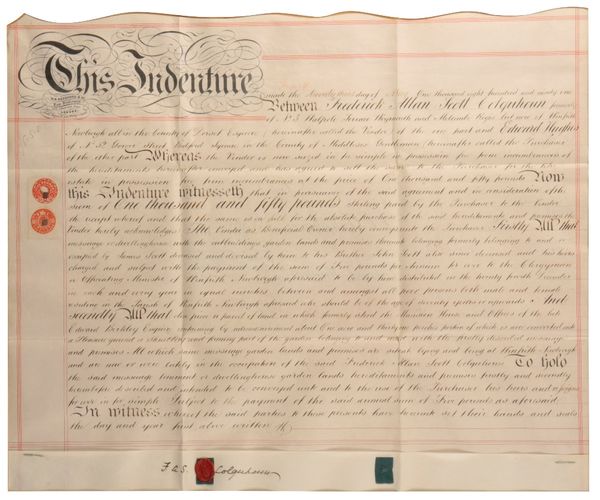 This Indenture
made the twenty third day of One thousand eight hundred and ninety one
Between Frederick Allan Scott Colquhoun formerly
of No. 5 Walpole Terrace Weymouth and Melcombe Regis but now of Winfrith
Newburgh all in the County of Dorset Esquire (hereinafter called the Vendor) of the one part and Edward Hughes
of No. 52 Street Bedford Square in the County of Middlesex Gentleman (hereinafter called the Purchaser)
of the other part Whereas the Vendor is now seized in fee simple in possession free from incumbrances of
the hereditaments hereinafter conveyed and has agreed to sell the same to the Purchaser for the like
estate in possession free from incumbrances at the price of One thousand and fifty pounds Now
this Indenture witnesseth that in pursuance of the said agreement and in consideration of the
sum of One thousand and fifty pounds sterling paid by the Purchaser to the Vendor
the receipt whereof and that the same is in full for the absolute purchase of the said hereditaments and premises the
Vendor hereby acknowledges The Vendor as Beneficial Owner hereby conveys unto the Purchaser Firstly All that
messuage or dwellinghouse with the outbuildings garden lands and premises thereto belonging formerly belonging to and
occupied by James Scott deceased and devised by him to his Brother John Scott also since deceased and his heirs
charged and subject with the payment of the sum of Five pounds per annum for ever to the Clergyman
or Officiating Minister of Winfrith Newburgh aforesaid to be by him distributed on the twenty fourth December
in each and every year in equal moieties between and amongst all poor persons both male and female
residing in the Parish of Winfrith Newburgh aforesaid who should be of the age of seventy years or upwards And
secondly All that also piece or parcel of land in which formerly stood the Mansion House and Offices of the late
Edward Esquire containing by admeasurement about One acre and thirty six perches portion of which is now converted into
a Pleasure ground or shrubbery and forming part of the garden belonging to and used with the firstly described messuage
and premises All which same messuage garden lands and premises are situate lying and being at Winfrith Newburgh
and are now or were lately in the occupation of the said Frederick Allan Scott Colquhoun To hold
the said messuage tenement or dwellinghouse garden lands hereditaments and premises firstly and secondly
hereinbefore described and intended to be conveyed unto and to the use of the Purchaser his heirs and assigns
for ever in fee simple Subject to the payment of the said annual sum of Five pounds as aforesaid
In witness whereof the said parties to these presents have hereunto set their hands and seals
the day and year first above written
F. A. S. Colquhoun